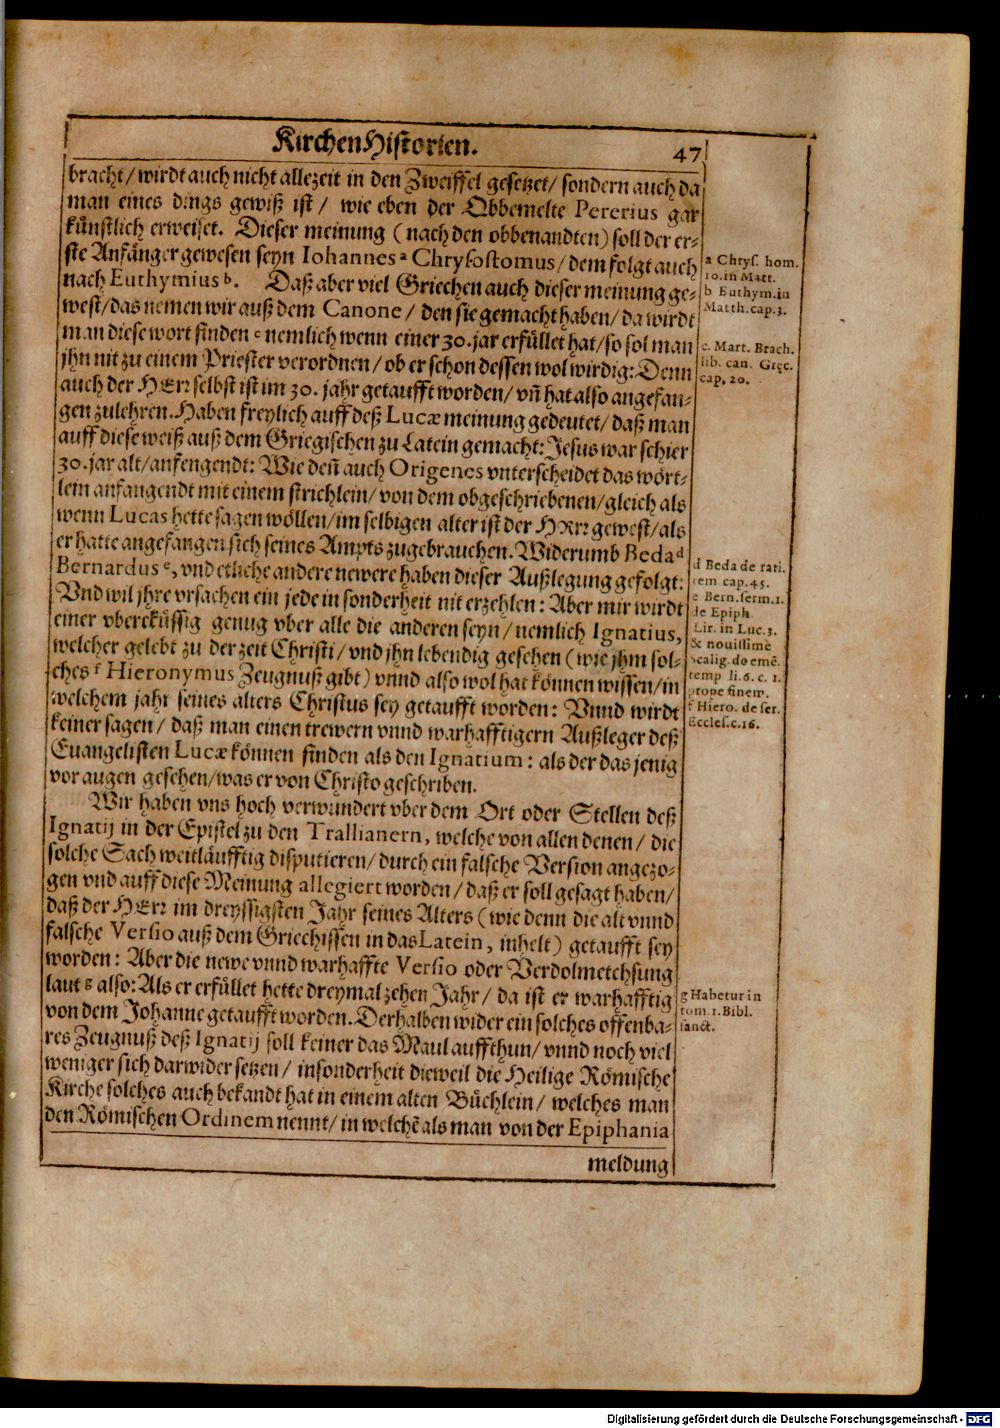 KirchenHistorien.
47
bracht/ wirdt auch nicht allezeit in den Zweiffel gesetzet/ sondern auch da
man eines dings gewiß ist/ wie eben der Obbemelte Pererius gar
künstlich erweiset. Dieser meinung (nach den obbenandten) soll der er-
ste Anfänger gewesen seyn Iohannes ᵃ Chrysostomus/ dem folgt auch
nach Euthymius ᵇ. Daß aber viel Griechen auch dieser meinung ge-
west/ das nemen wir auß dem Canone/ den sie gemacht haben/ da wirdt
man diese wort finden ᶜ nemlich wenn einer 30. jar erfüllet hat/ so sol man
jhn nit zu einem Priester verordnen/ ob er schon dessen wol wirdig: Denn
auch der HErr selbst ist im 30. jahr getaufft worden/ vñ hat also angefan-
gen zulehren. Haben freylich auff deß Lucæ meinung gedeutet/ daß man
auff diese weiß auß dem Griegischen zu Latein gemacht: Jesus war schier
30. jar alt/ anfengendt: Wie deñ auch Origenes vnterscheidet das wört-
lein anfangendt mit einem strichlein/ von dem obgeschriebenen/ gleich als
wenn Lucas hette sagen wöllen/ im selbigen alter ist der HErr gewest/ als
er hatte angefangen sich seines Ampts zugebrauchen. Widerumb Beda ᵈ
Bernardus ᵉ, vnd etliche andere newere haben dieser Außlegung gefolgt:
Vnd wil jhre vrsachen ein jede in sonderheit nit erzehlen: Aber mir wirdt
einer vberckussig genug vber alle die anderen seyn/ nemlich Ignatius,
welcher gelebt zu der zeit Christi/ vnd jhn lebendig gesehen (wie jhm sol-
ches ᶠ Hieronymus Zeugnuß gibt) vnnd also wol hat können wissen/ in
welchem jahr seines alters Christus sey getaufft worden: Vnnd wirdt
keiner sagen/ daß man einen trewern vnnd warhafftigern Außleger deß
Euangelisten Lucæ können finden als den Ignatium: als der das jenig
vor augen gesehen/ was er von Christo geschriben.
Wir haben vns hoch verwundert vber dem Ort oder Stellen deß
Ignatij in der Epistel zu den Trallianern, welche von allen denen/ die
solche Sach weitläufftig disputieren/ durch ein falsche Version angezo-
gen vnd auff diese Meinung allegiert worden/ daß er soll gesagt haben/
daß der HErr im dreyssigsten Jahr seines Alters (wie denn die alt vnnd
falsche Versio auß dem Griechissen in das Latein, inhelt) getaufft sey
worden: Aber die newe vnnd warhaffte Versio oder Verdolmetchsung
laut ᵍ also: Als er erfüllet hette dreymal zehen Jahr/ da ist er warhafftig
von dem Johanne getaufft worden. Derhalben wider ein solches offenba-
res Zeugnuß deß Ignatij soll keiner das Maul auffthun/ vnnd noch viel
weniger sich darwider setzen/ insonderheit dieweil die Heilige Römische
Kirche solches auch bekandt hat in einem alten Büchlein/ welches man
den Römischen Ordinem nennt/ in welchē als man von der Epiphania
meldung
a Chrys. hom.
10. in Matt.
b Euthym. in
Matth. cap. 3.
c. Mart. Brach.
lib. can. Gręc.
cap. 20.
d Beda de rati.
tem cap. 45.
e Bern. serm. 1.
de Epiph.
Lir. in Luc. 3.
& nouissimè
Scalig. do emē.
temp li. 6. c. 1.
prope finem.
f Hiero. de scr.
Eccles. c. 16.
g Habetur in
tom. 1. Bibl.
sanct.
Digitalisierung gefördert durch die Deutsche Forschungsgemeinschaft - DFG